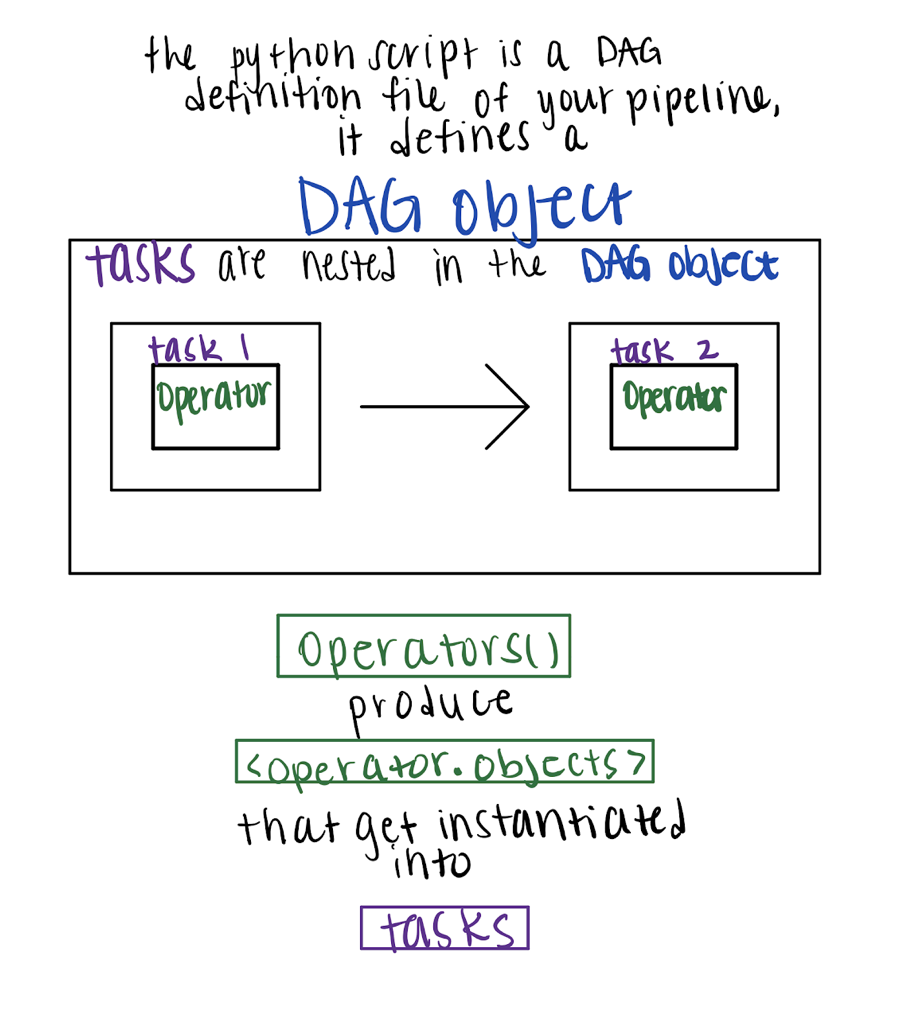 the python script is a DAG
definition file of your pipeline,
it defines a
DAG object
tasks are nested in the DAG object
task 1
Operator
task 2
Operator
Operators()
produce
<operator.objects>
that get instantiated
into
tasks